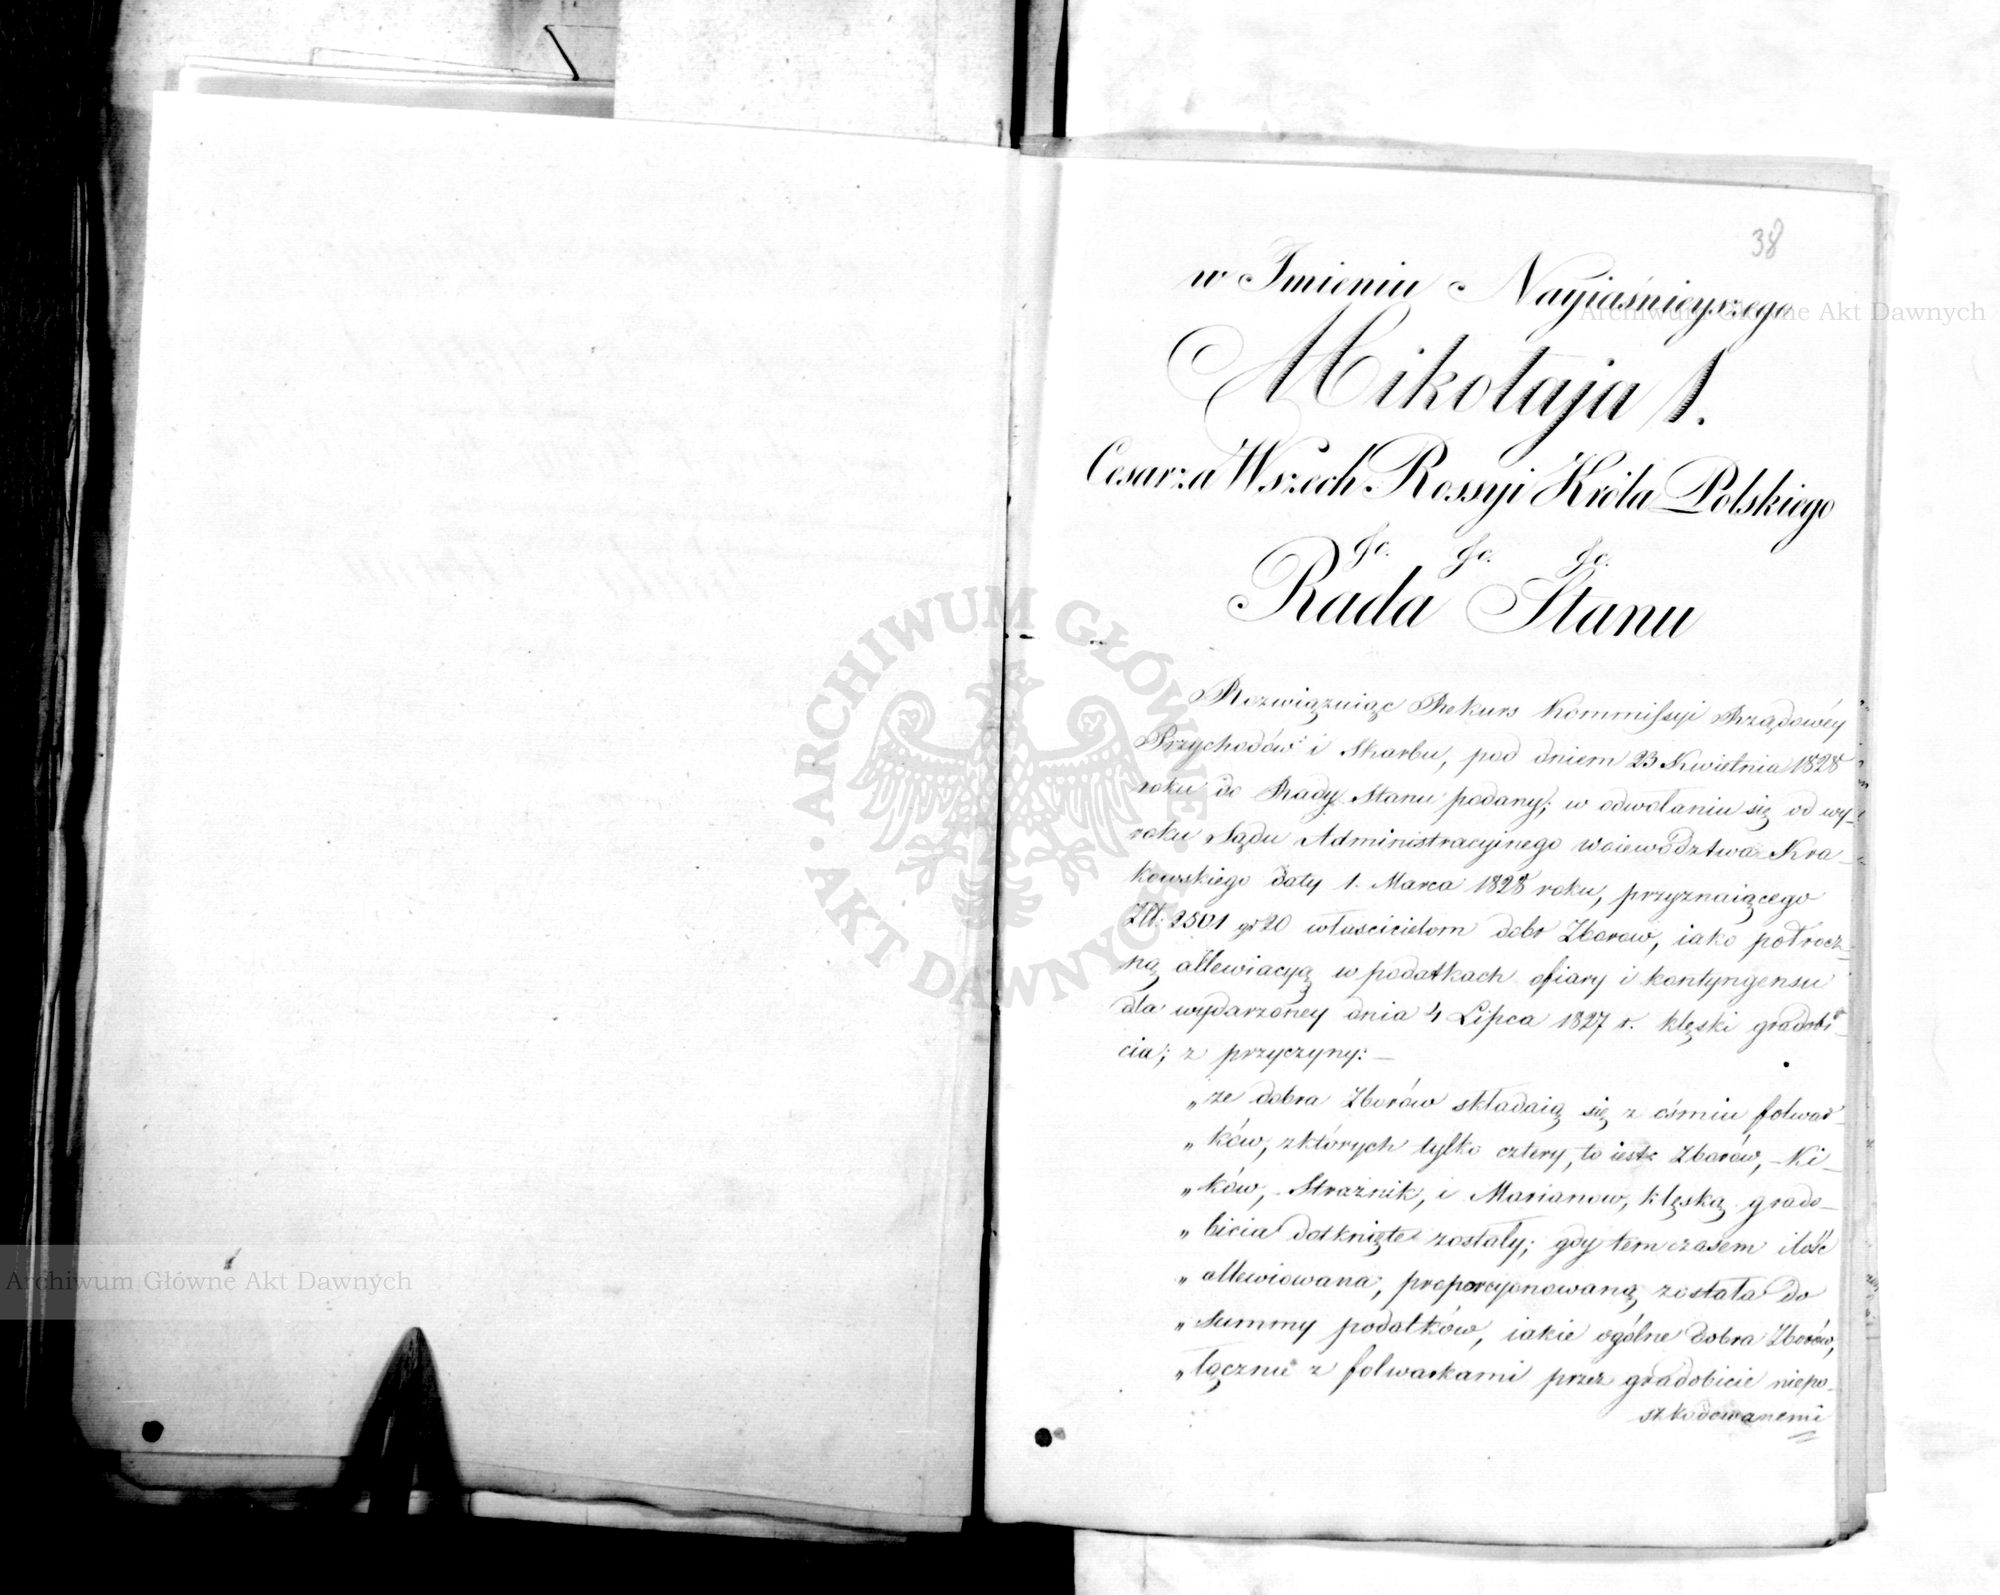 38
w Imieniu Nayiaśnieyszego
Archiwum Główne Akt Dawnych
Mikołaja I.
Cesarza Wszech Rossyi Króla Polskiego
&c. &c. &c.
Rada Stanu
ARCHIWUM GŁÓWNE AKT DAWNYCH
Rozwiązuiąc Rekurs Kommissyi Rządowéy
Przychodów i Skarbu, pod dniem 23 Kwietnia 1828
roku do Rady Stanu podany; w odwołaniu się od wy-
roku Sądu Administracyinego Woiewództwa Kra-
kowskiego daty 1. Marca 1828 roku, przyznaiącego
Złt: 2501 gr 20 właścicielom dobr Zborow, iako półrocz-
ną allewiacyą w podatkach ofiary i kontyngensu
dla wydarzoney dnia 4 Lipca 1827 r. klęski gradobi-
cia; z przyczyny: —
„że dobra Zborów składaią się z ośmiu folwar-
„ków, z których tylko cztery, to iest: Zborów, Ki-
„ków, Strażnik, i Marianow, klęską grado-
„bicia dotknięte zostały; gdy tem czasem ilość
„allewiowana, proporcyonowaną została do
„summy podatków, iakie ogólne dobra Zborów,
„łącznie z folwarkami przez gradobicie niepo-
szkodowanemi
Archiwum Główne Akt Dawnych